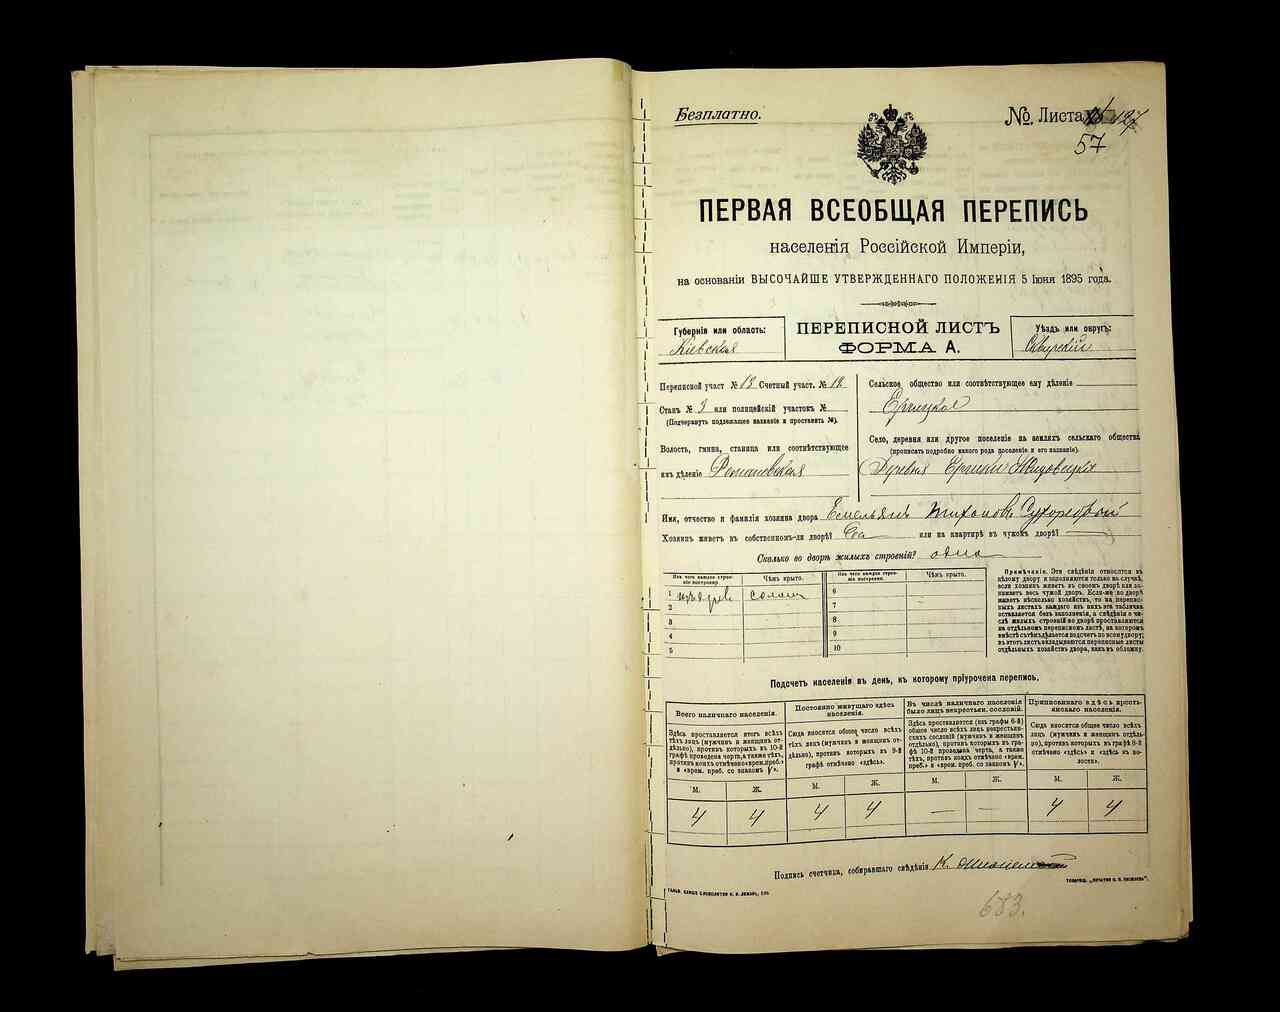 Безплатно.
№. Листа 127
57
ПЕРВАЯ ВСЕОБЩАЯ ПЕРЕПИСЬ
населенія Россійской Имперіи,
на основаніи ВЫСОЧАЙШЕ УТВЕРЖДЕННАГО ПОЛОЖЕНІЯ 5 Іюня 1895 года.
Губернія или область:
Кіевская
ПЕРЕПИСНОЙ ЛИСТЪ
ФОРМА А.
Уѣздъ или округъ:
Сквирскій
Переписной участ № 13 Счетный участ. № 12
Станъ № 3 или полицейскій участокъ №
(Подчеркнуть подлежащее названіе и проставить №).
Волость, гмина, станица или соотвѣтствующее
имъ дѣленіе Романовская
Сельское общество или соотвѣтствующее ему дѣленіе
Ерчицкое
Село, деревня или другое поселеніе на земляхъ сельскаго общества
(прописать подробно какого рода поселеніе и его названіе).
Деревня Ерчики
Имя, отчество и фамилія хозяина двора Емельянъ Тихоновъ
Хозяинъ живетъ въ собственномъ-ли дворѣ? Да или на квартирѣ въ чужомъ дворѣ?
Сколько во дворѣ жилыхъ строеній? одно
Изъ чего каждое строеніе построено.
Чѣмъ крыто.
1 изъ древ солом
2
3
4
5
Изъ чего каждое строеніе построено.
Чѣмъ крыто.
6
7
8
9
10
Примѣчаніе. Эти свѣдѣнія относятся къ
цѣлому двору и заполняются только въ случаѣ,
если хозяинъ живетъ въ своемъ дворѣ или за-
нимаетъ весь чужой дворъ. Если-же во дворѣ
живетъ нѣсколько хозяйствъ, то на перепис-
ныхъ листахъ каждаго изъ нихъ эта табличка
оставляется безъ заполненія, а свѣдѣнія о чи-
слѣ жилыхъ строеній во дворѣ проставляются
на отдѣльномъ переписномъ листѣ, на которомъ
вмѣстѣ съ тѣмъ дѣлается подсчетъ по всему двору;
въ этотъ листъ вкладываются переписные листы
отдѣльныхъ хозяйствъ двора, какъ въ обложку.
Подсчетъ населенія въ день, къ которому пріурочена перепись.
Всего наличнаго населенія.
Здѣсь проставляется итогъ всѣхъ
тѣхъ лицъ (мужчинъ и женщинъ от-
дѣльно), противъ которыхъ въ 10-й
графѣ проведена черта, а также тѣхъ,
противъ коихъ отмѣчено «врем. преб.»
и «врем. преб. со знакомъ V».
М. Ж.
4 4
Постоянно живущаго здѣсь
населенія.
Сюда вносится общее число всѣхъ
тѣхъ лицъ (мужчинъ и женщинъ от-
дѣльно), противъ которыхъ въ 9-й
графѣ отмѣчено «здѣсь».
М. Ж.
4 4
Въ числѣ наличнаго населенія
было лицъ некрестьян. сословій.
Здѣсь проставляется (изъ графы 6-й)
общее число всѣхъ лицъ некрестьян-
скихъ сословій (мужчинъ и женщинъ
отдѣльно), противъ которыхъ въ гра-
фѣ 10-й проведена черта, а также
тѣхъ, противъ коихъ отмѣчено «врем.
преб.» и «врем. преб. со знакомъ V».
М. Ж.
— —
Приписаннаго здѣсь кресть-
янскаго населенія.
Сюда вносится общее число всѣхъ
лицъ (мужчинъ и женщинъ отдѣль-
но), противъ которыхъ въ графѣ 8-й
отмѣчено «здѣсь» и «здѣсь въ во-
лости».
М. Ж.
4 4
Подпись счетчика, собиравшаго свѣдѣнія К.
683.